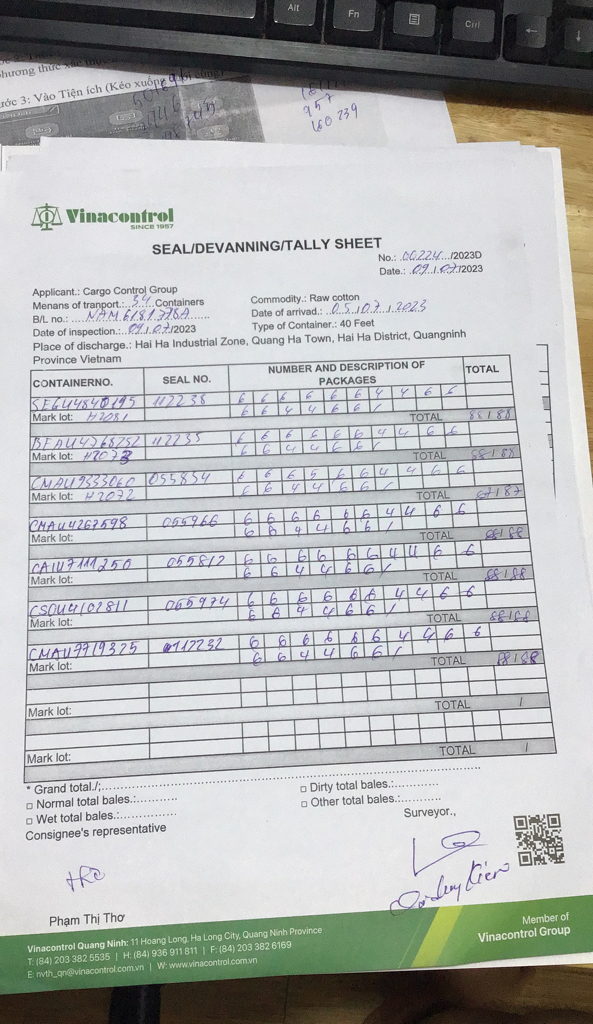 Alt
Fn
Ctrl
ước 3: Vào Tiện ích (Kéo xuống
957
160 239
Vinacontrol
SINCE 1957
SEAL/DEVANNING/TALLY SHEET
No.: 00224 /2023D
Date.: 09/07/2023
Applicant.: Cargo Control Group
Menans of tranport.: 34 Containers
Commodity.: Raw cotton
B/L no.: NAM6181778A
Date of arrivad.: 05/07/2023
Date of inspection.: 09/07/2023
Type of Container.: 40 Feet
Place of discharge.: Hai Ha Industrial Zone, Quang Ha Town, Hai Ha District, Quangninh
Province Vietnam
CONTAINERNO. SEAL NO. NUMBER AND DESCRIPTION OF PACKAGES TOTAL
SEGU4840195 112238 6 6 6 6 6 6 4 4 6 6
Mark lot: H2081 6 6 4 4 6 6 / TOTAL 88/88
BEAU4768252 112235 6 6 6 6 6 6 4 4 6 6
Mark lot: H2073 6 6 4 4 6 6 / TOTAL 88/88
CMAU9333060 055834 6 6 6 5 6 6 4 4 6 6
Mark lot: H2072 6 6 4 4 6 6 / TOTAL 87/87
CMAU4267598 055966 6 6 6 6 6 6 4 4 6 6
Mark lot: 6 6 4 4 6 6 / TOTAL 88/88
CAIU7111250 055812 6 6 6 6 6 6 4 4 6 6
Mark lot: 6 6 4 4 6 6 / TOTAL 88/88
CSOU4102811 065974 6 6 6 6 6 6 4 4 6 6
Mark lot: 6 6 4 4 6 6 / TOTAL 88/88
CMAU7719325 112232 6 6 6 6 6 6 4 4 6 6
Mark lot: 6 6 4 4 6 6 / TOTAL 88/88
Mark lot: TOTAL /
Mark lot: TOTAL /
* Grand total./:
□ Normal total bales.:
□ Dirty total bales.:
□ Wet total bales.:
□ Other total bales.:
Consignee's representative
Surveyor.,
Phạm Thị Thơ
Vinacontrol Quang Ninh: 11 Hoang Long, Ha Long City, Quang Ninh Province
T: (84) 203 382 5535 | H: (84) 936 911 811 | F: (84) 203 382 6169
E: nvth_qn@vinacontrol.com.vn | W: www.vinacontrol.com.vn
Member of
Vinacontrol Group